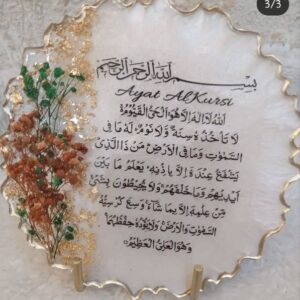 3/3
بسم الله الرحمن الرحيم
Ayat AlKursi
اَللهُ لَا اِلٰهَ اِلَّا هُوَ الْحَیُّ الْقَیُّوْمُ
لَا تَاْخُذُهٗ سِنَةٌ وَّلَا نَوْمٌ لَهٗ مَا فِی
السَّمٰوٰتِ وَمَا فِی الْاَرْضِ مَنْ ذَا الَّذِیْ
یَشْفَعُ عِنْدَهٗ اِلَّا بِاِذْنِهٖ یَعْلَمُ مَا بَیْنَ
اَیْدِیْهِمْ وَمَا خَلْفَهُمْ وَلَا یُحِیْطُوْنَ بِشَیْءٍ
مِّنْ عِلْمِهٖ اِلَّا بِمَا شَآءَ وَسِعَ كُرْسِیُّهُ
السَّمٰوٰتِ وَالْاَرْضَ وَلَا یَئُوْدُهٗ حِفْظُهُمَا
وَهُوَ الْعَلِیُّ الْعَظِیْمُ